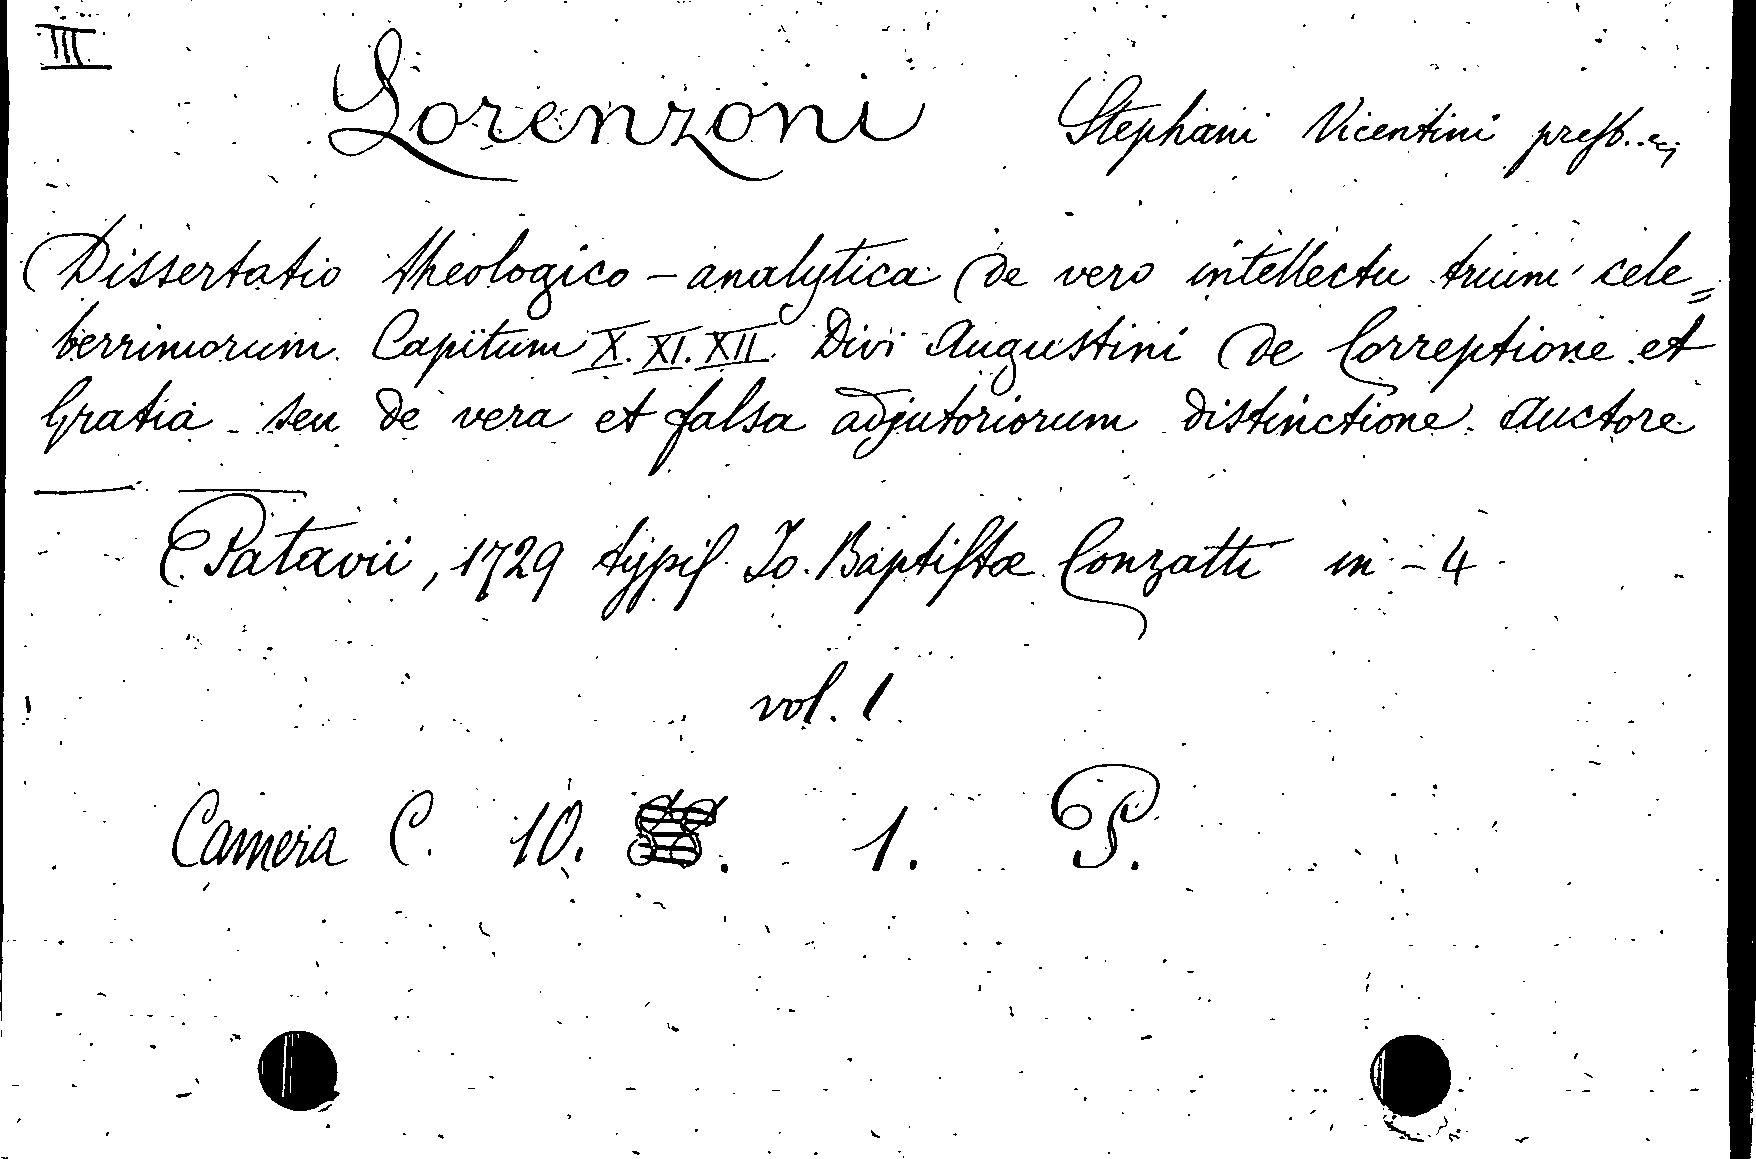 III
Lorenzoni Stephani Vicentini presb..
Dissertatio theologico-analytica De vero intellectu trium cele=
berrimorum Capitum X. XI. XII. Divi Augustini De Correptione et
Gratia seu de vera et falsa adjutoriorum distinctione. Auctore
— —
Patavii, 1729 typis Jo. Baptistæ Conzatti in-4
vol. 1
Camera C. 10. 1. P.